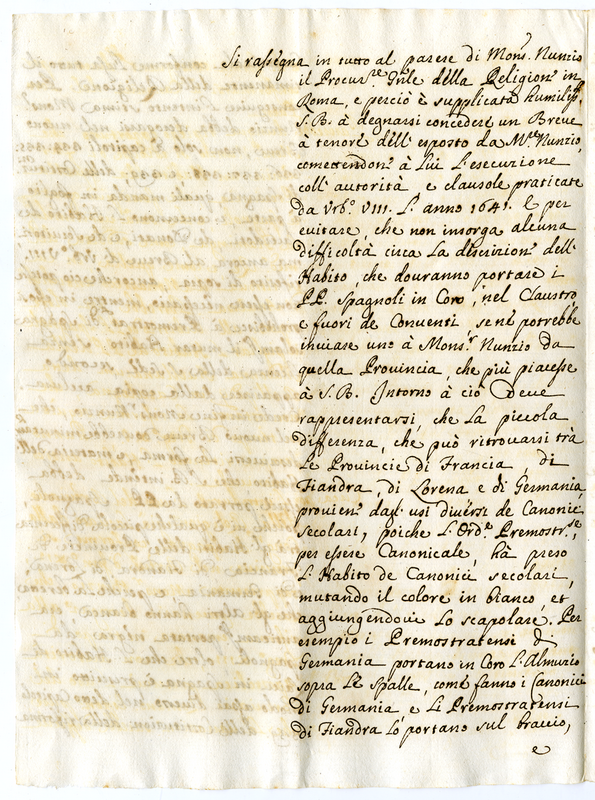 Si rassegna in tutto al parere di Mons.r Nunzio
il Procur.re Gñle della Religione in
Roma, e perciò è supplicata humiliss.te
S. B. à degnarsi concedere un Breve
à tenore dell' esposto da M.re Nunzio,
comettendone à Lui L' esecuzione
coll' autorità, e clausole praticate
da Vrb.o VIII. L' anno 1641. E per
evitare, che non insorga alcuna
difficoltà circa La discrizione dell'
Habito, che douranno portare i
PP. Spagnoli in Coro, nel Claustro,
e fuori de Conventi, se nè potrebbe
inviare uno à Mons.r Nunzio da
quella Provincia, che più piacesse
à S. B. Intorno à ciò Deve
rappresentarsi, che La piccola
differenza, che può ritrovarsi trà
Le Provincie di Francia, di
Fiandra, di Lorena e di Germania,
proviene dagl' usi diversi de Canonici
secolari, poiche L' Ord.e Premostr.se,
per essere Canonicale, hà preso
L' Habito de Canonici secolari,
mutando il colore in bianco, et
aggiungendovi Lo scapolare. Per
esempio i Premostratensi di
Germania portano in Coro L' Almuzio
sopra Le Spalle, come fanno i Canonici
di Germania e Li Premostratensi
di Fiandra Lo portano sul braccio,
e